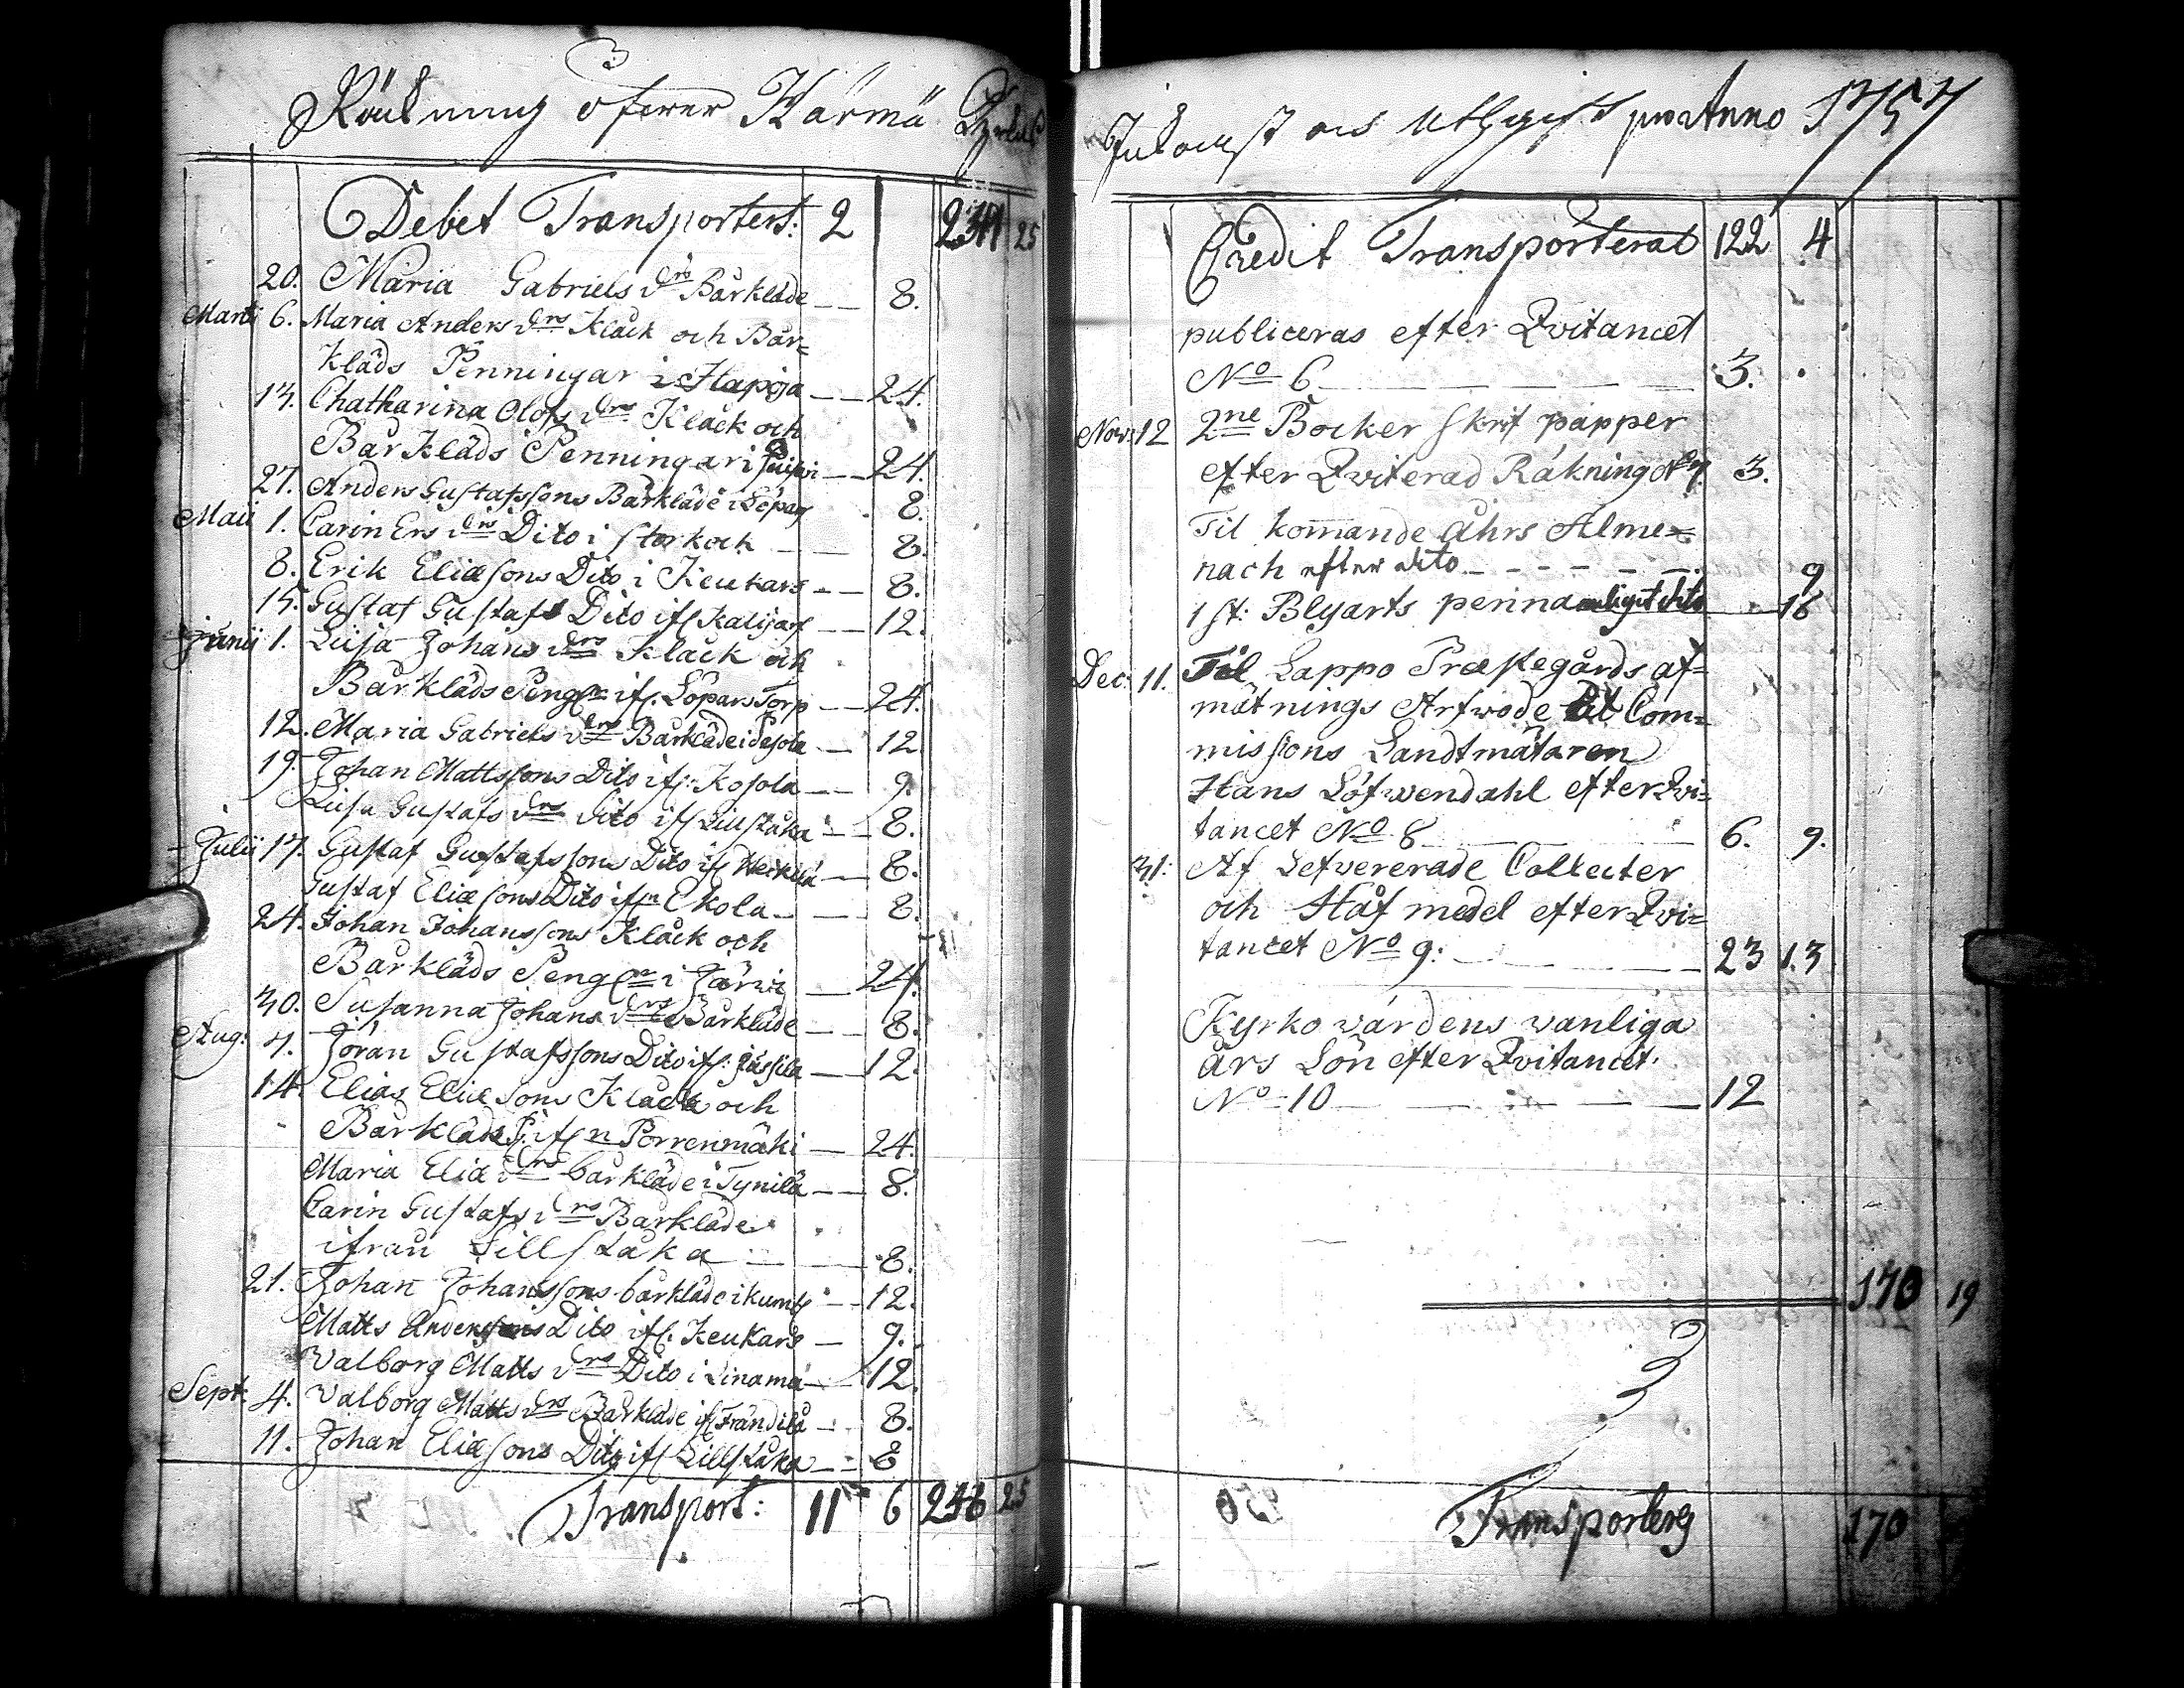 Räkning öfwer Härmä Kyrkias
Debet Transportert: 2 234 25
20. Maria Gabriels drs Bårkläde 8.
Marti 6. Maria Anders drs Klåck och Bår=
kläds Penningar i Hapoja 24.
13. Chatharina Olofs drs Klåck och
Bår Kläds Penningar i 24.
27. Anders Gustafssons Bårkläde i 8.
Maii 1. Carin Ers drs Dito i Storkoch 8.
8. Erik Eliæsons Dito i Keukars 8.
15. Gustaf Gustafs Dito ifr Kalijarf 12.
Junij 1. Liisa Johans drs Klåck och
Bårkläds Pengr ifr. Lopars Torp 24.
12. Maria Gabriels drs Bårkläde i Pesola 12
19. Johan Mattssons Dito ifr: Kosola 9.
Liisa Gustafs drs Dito ifr Lillståka 8.
Julii 17. Gustaf Gustafssons Dito ifr Heikilä 8.
Gustaf Eliæsons Dito ifrn Ekola 8.
24. Johan Johanssons Klåck och
Bårkläds Pengr i Järwi 24.
30. Susanna Johans drs Bårkläde 8.
Aug: 7. Jöran Gustafssons Dito ifr: Jussila 12.
14. Elias Eliæsons Klåck och
Bårkläds P. ifrn Porrenmäki 24.
Maria Eliæ drs bårkläde i Tynilä 8.
Carin Gustafs drs Bårkläde
ifrån Lillståka 8.
21. Johan Johanssons bårkläde i kump 12.
Matts Anderssons Dito ifr. Keukars 9.
Valborg Matts drs Dito i Linama 12.
Sept: 4. Valborg Matts drs Bårkläde ifr Frändilä 8.
11. Johan Eliæsons Dito ifr Lillståka 8
Transport: 11 6 246 25
Inkomst och Uthgift pro Anno 1757
Credit Transporterat 122 4
publiceras efter Qvitancet
No 6 3.
Nov: 12 2ne Böcker skrif papper
efter Qviterad Räkning No 7. 3.
Til kommande åhrs Alme=
nach efter dito 9
1 st: Blyarts penna enligit dito 16
Dec: 11. Til Lappo Præstegårds af=
mätnings Arfwode til Com=
missions Landtmätaren
Hans Löfwendahl efter Qvi=
tancet No 8 6. 9.
31: Af Lefvererade Collecter
och Håf medel efter Qvi=
tancet No 9: 23 13
Kyrko värdens wanliga
års Lön efter Qvitancet
No 10 12
170 19
Transporters 170